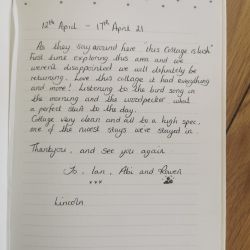 12th April - 17th April 21
As they say around here, this Cottage is lush"
First time exploring this area and we
weren't disappointed we will definitely be
returning. Love this cottage it had everything
and more! Listening to the bird song in
the morning and the woodpecker what
a perfect start to the day.
Cottage very clean and all to a high spec,
one of the nicest stays we've stayed in.
Thankyou, and see you again
Jo, Ian, Abi and Rowen
xxx
Lincoln